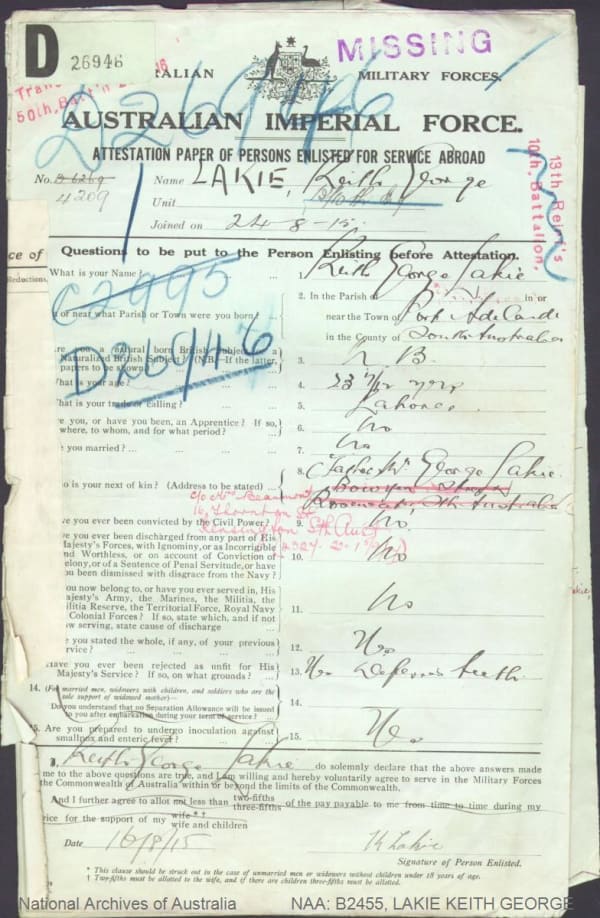 D 26946
MISSING
RALIAN MILITARY FORCES.
50th. Batt'n
D26946
AUSTRALIAN IMPERIAL FORCE.
ATTESTATION PAPER OF PERSONS ENLISTED FOR SERVICE ABROAD
No. 4209 Name LAKIE, Keith George
Unit
Joined on 24-8-15.
13th Reinf's
10th. Battalion,
ce of
Questions to be put to the Person Enlisting before Attestation.
Reductions.
What is your Name? ... Keith George Lakie
C2995
2. In the Parish of in or
or near what Parish or Town were you born? near the Town of Port Adelaide
in the County of South Australia
D26946
you a natural born British Subject or a
Naturalized British Subject? (N.B.—If the latter,
papers to be shown) 3. N B.
hat is your age? 4. 23 years
hat is your trade or calling? ... 5. Labourer
e you, or have you been, an Apprentice? If so,
where, to whom, and for what period? 6. No
e you married? ... 7. No
8. Father Mr George Lakie
o is your next of kin? (Address to be stated) Bowyer Street
Rosewater, Sth Australia
c/o Mrs Beaumont
16, Thornton St
Kensington Sth Aust
ave you ever been convicted by the Civil Power? 9. No
ve you ever been discharged from any part of His
Majesty's Forces, with Ignominy, or as Incorrigible
and Worthless, or on account of Conviction of
elony, or of a Sentence of Penal Servitude, or have
you been dismissed with disgrace from the Navy? 10. No
you now belong to, or have you ever served in, His
ajesty's Army, the Marines, the Militia, the
ilitia Reserve, the Territorial Force, Royal Navy
Colonial Forces? If so, state which, and if not
w serving, state cause of discharge 11. No
e you stated the whole, if any, of your previous
service? 12. Yes
Have you ever been rejected as unfit for His
Majesty's Service? If so, on what grounds? 13. Yes Defective teeth
14. (For married men, widowers with children, and soldiers who are the
sole support of widowed mother)—
Do you understand that no Separation Allowance will be issued
to you after embarkation during your term of service? 14.
15. Are you prepared to undergo inoculation against
smallpox and enteric fever? 15. Yes
I, Keith George Lakie do solemnly declare that the above answers made
me to the above questions are true, and I am willing and hereby voluntarily agree to serve in the Military Forces
the Commonwealth of Australia within or beyond the limits of the Commonwealth.
And I further agree to allot not less than two-fifths three-fifths of the pay payable to me from time to time during my
vice for the support of my wife*† wife and children
Date 16/8/15 K Lakie
Signature of Person Enlisted.
* This clause should be struck out in the case of unmarried men or widowers without children under 18 years of age.
† Two-fifths must be allotted to the wife, and if there are children three-fifths must be allotted.
National Archives of Australia NAA: B2455, LAKIE KEITH GEORGE